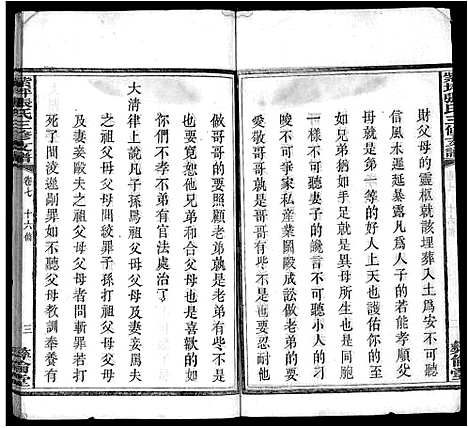 紫坪張氏三修支譜
財父母的靈柩就該埋葬入土爲安不可聽
信堪輿遲延暴露凡爲人子的若能孝順父
母就是第一等的好人上天也護佑你的至
於兄弟猶如手足就是異母所生也是一體
一派不可聽妻子的讒言不可聽小人的刁
唆不可爭家私產業鬭毆成訟做老弟的要
愛敬哥哥哥哥有些不是也要忍耐
做哥哥的要照顧老弟老弟有些不是
也要寬恕他兄弟和氣父母也是喜歡的如
你們不孝不弟有官法處治了
大清律上說凡子孫罵祖父母父母
及妻妾罵夫
之祖父母父母問絞罪子孫打祖父母父母
及妻妾毆夫之祖父母父母者問斬罪若打
死了問凌遲剮罪如不聽父母教訓奉養有
紫坪張氏三修支譜
卷七
十六條
三
彝倫堂